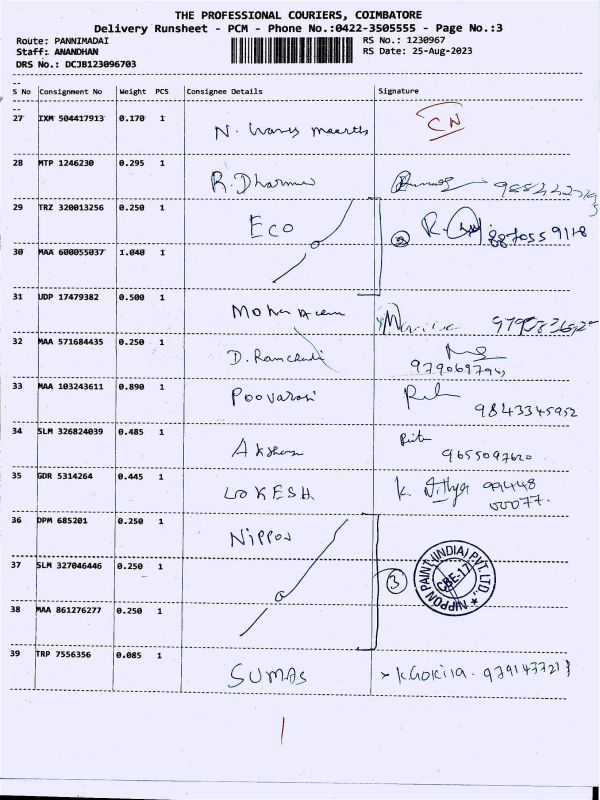 THE PROFESSIONAL COURIERS, COIMBATORE
Delivery Runsheet - PCM - Phone No.:0422-3505555 - Page No.:3
Route: PANNIMADAI
RS No.: 1230967
Staff: ANANDHAN
RS Date: 25-Aug-2023
DRS No.: DCJB123096703
S No Consignment No Weight PCS Consignee Details Signature
27 IXM 504417913 0.170 1
N. CN
28 MTP 1246230 0.295 1
R. Dharma
29 TRZ 320013256 0.250 1
ECO R. 8870559118
30 MAA 600055037 1.040 1
31 UDP 17479382 0.500 1
32 MAA 571684435 0.250 1
D.
33 MAA 103243611 0.890 1
Poovarasi 9843345952
34 SLM 326824039 0.485 1
9655097620
35 GDR 5314264 0.445 1
LOKESH K. Nithya 99448
00077.
36 DPM 685201 0.250 1
Nippon
37 SLM 327046446 0.250 1
3
NIPPON PAINT (INDIA) PVT. LTD.,
CBE-17
38 MAA 861276277 0.250 1
39 TRP 7556356 0.085 1
SUMAS K. Gokila.